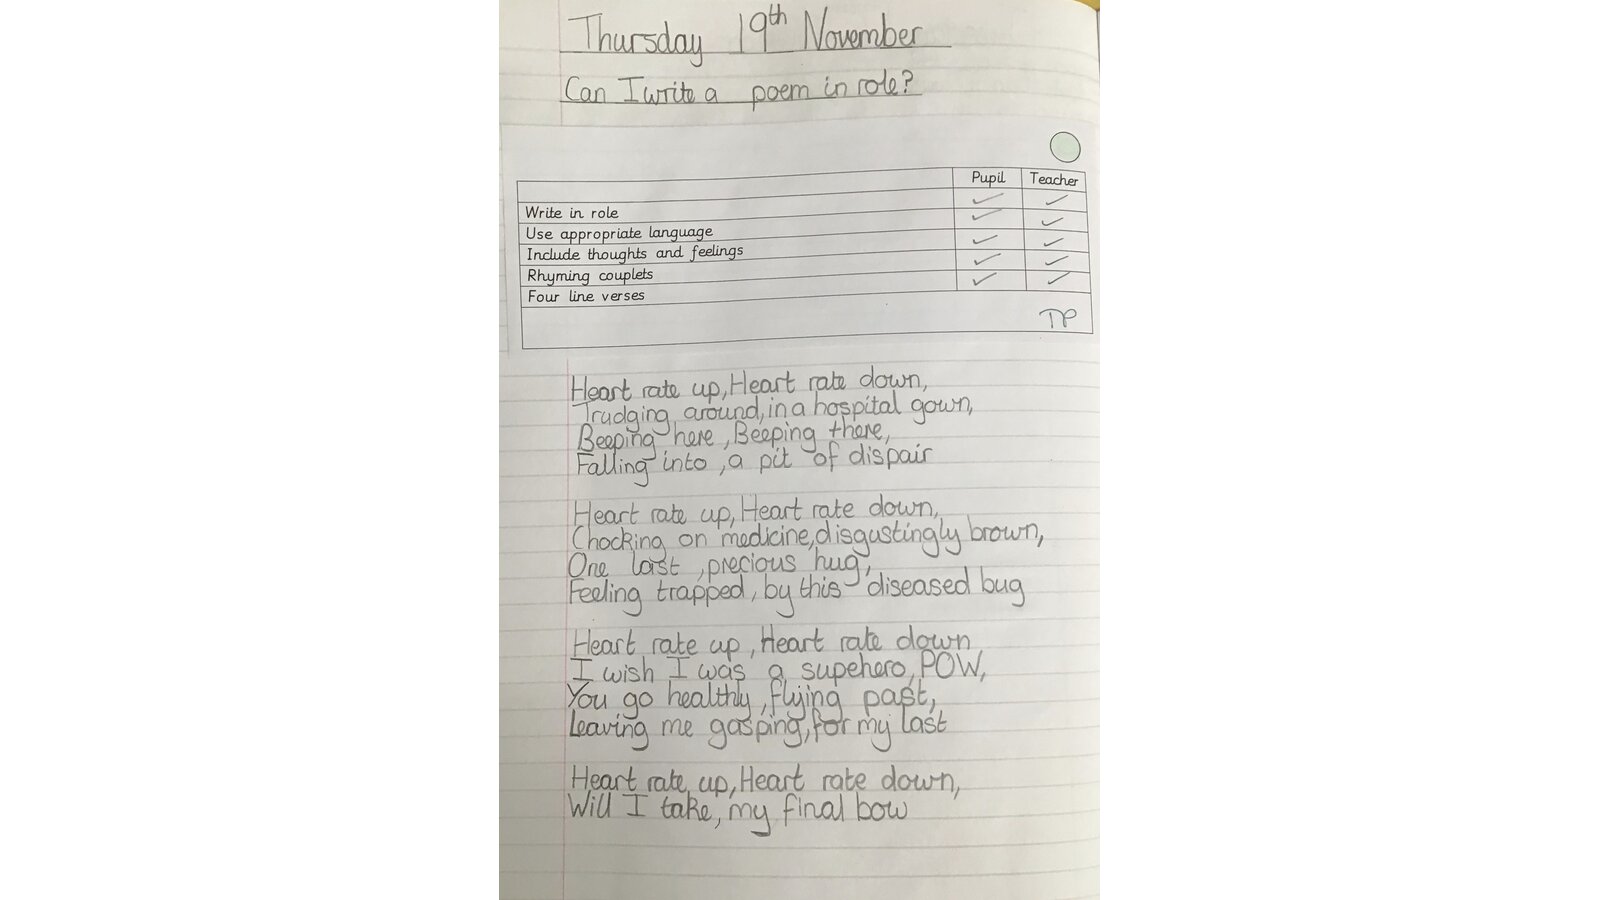 Thursday 19th November
Can I write a poem in role?
Pupil Teacher
Write in role
Use appropriate language
Include thoughts and feelings
Rhyming couplets
Four line verses
TP
Heart rate up, Heart rate down,
Trudging around, in a hospital gown,
Beeping here, Beeping there,
Falling into, a pit of dispair
Heart rate up, Heart rate down,
Chocking on medicine, disgustingly brown,
One last, precious hug,
Feeling trapped, by this diseased bug
Heart rate up, Heart rate down
I wish I was a supehero, POW,
You go healthly, flying past,
Leaving me gasping, for my last
Heart rate up, Heart rate down,
Will I take, my final bow